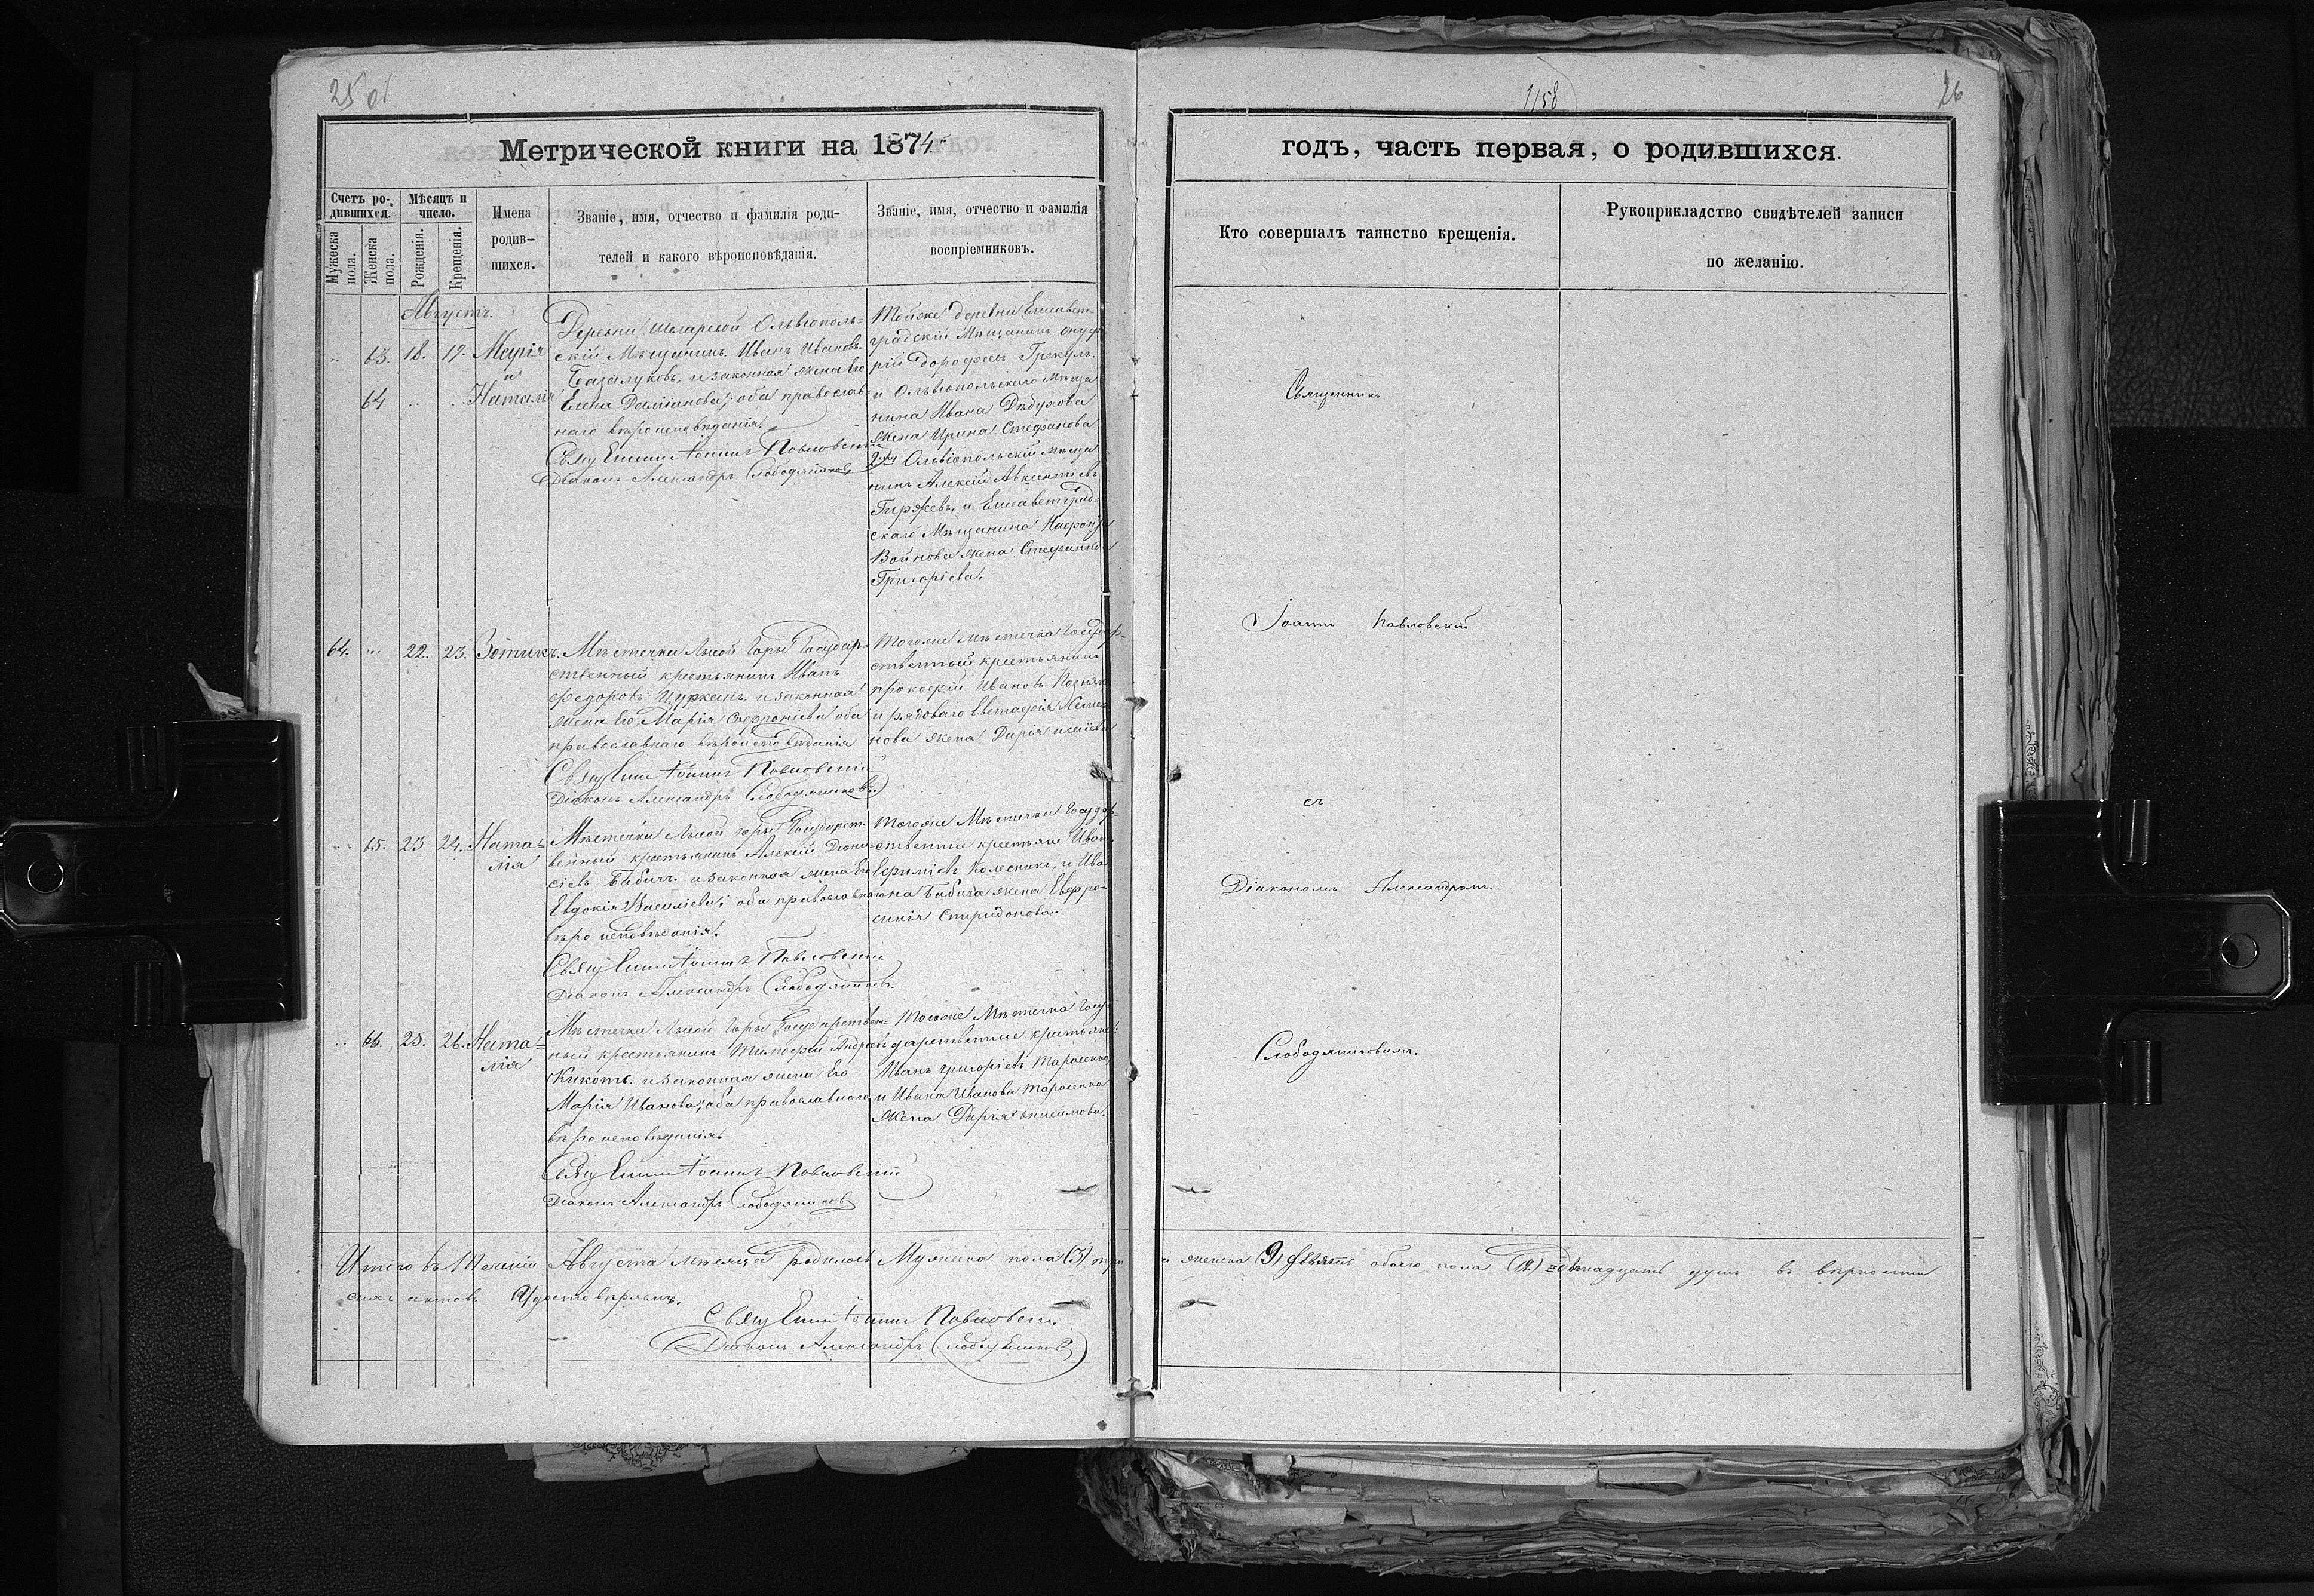 25 об
1158
26
Метрической книги на 1874
годъ, часть первая, о родившихся.
Счетъ родившихся.
Мужеска пола.
Женска пола.
Мѣсяцъ и число.
Рожденія.
Крещенія.
Имена родив-
шихся.
Званіе, имя, отчество и фамилія роди-
телей и какого вѣроисповѣданія.
Званіе, имя, отчество и фамилія
воспріемниковъ.
Кто совершалъ таинство крещенія.
Рукоприкладство свидѣтелей записи
по желанію.
Августъ.
63. 18. 19. Марія
и
64 Наталія
Деревни Ольвіополь=
скій Мѣщанинъ Иванъ Ивановъ
и законная жена его
Елена Даміанова; оба православ
наго вѣроисповѣданія.
Іоаннъ Павловскій
Діаконъ Александръ Слободяниковъ
Тойже деревни Елисавет-
градскій Мѣщанинъ
и Ольвіопольскаго Мѣща
нина Ивана
жена Ирина Стефанова
Ольвіопольскій Мѣща
нинъ Алексій Авксентіевъ
и Елисаветград=
скаго Мѣщанина
Войнова жена
Григоріева.
64. 22. 23. Зотикъ.
Мѣстечка Лысой Горы Государ=
ственный крестьянинъ Иванъ
Федоровъ и законная
жена его Марія оба
православнаго вѣроисповѣданія
Іоаннъ Павловскій
Діаконъ Александръ Слободяниковъ
Тогоже Мѣстечка Государ-
ственный крестьянинъ
Прокофій Ивановъ
и рядоваго Евстафія
жена Дарія
65. 23 24. Ната=
лія
Мѣстечка Лысой Горы Государст-
венный крестьянинъ Алексій Діони-
сіевъ Бабичъ и законная жена его
Евдокія Василіева; оба православнаго
вѣроисповѣданія.
Іоаннъ Павловскій
Діаконъ Александръ Слободяниковъ.
Тогоже Мѣстечка Государ-
ственные крестьяне Иванъ
Ефиміевъ Колесникъ, и Ива
на Бабича жена Евфро-
синія Спиридонова.
66. 25. 26. Ната=
лія
Мѣстечка Лысой Горы Государствен=
ный крестьянинъ Тимофей Андреевъ
Кикоть и законная жена его
Марія Иванова; оба православнаго
вѣроисповѣданія.
Іоаннъ Павловскій
Діаконъ Александръ Слободяниковъ
Тогоже Мѣстечка Госу
дарственные крестьяне:
Иванъ Григоріевъ Тарасенко,
и Ивана Иванова Тарасенка
жена Дарія
Священникъ
Іоаннъ Павловскій
съ
Діакономъ Александромъ
Слободяниковымъ.
Итого въ теченіи Августа мѣсяца родилось Мужеска пола (3) три и женска (9) девять обоего пола (12) двѣнадцать душъ въ вѣрности
сихъ актовъ удостовѣряемъ.
Іоаннъ Павловскій
Діаконъ Александръ Слободяниковъ